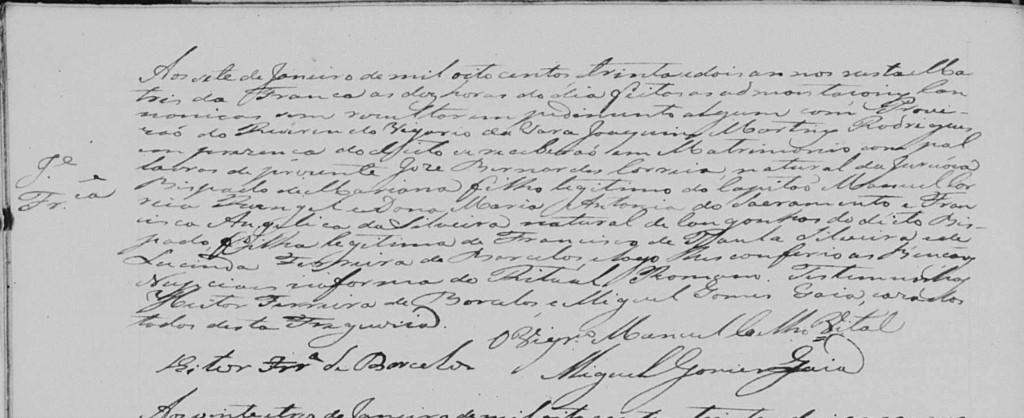 Aos sete de Janeiro de mil oito centos trinta e dois annos nesta Ma
tris da Franca as dez horas do dia feitos as admoestaçoins Can
nonicas sem rezultar impedimento algum com Provi-
zaõ do Reverendo Vigario da Vara Joaquim Martins Rodrigues
em prezenca do dito se receberaõ em Matrimonio com pal
labras de prezente Joze Bernardes Correia natural da
Bispado de Mariana filho legitimo do Capitaõ Manuel Cor
reia Rangel e Dona Maria Antonia do Sacramento e Fran
cisca Angelica da Silveira natural de Congonhas do dito Bis-
pado filha legitima de Francisco de Paula Silveira e de
Lucinda Ferreira de Barcelos e logo lhes conferio as Bençoens
Nupciais na forma do Ritual Romano. Testemunhas
Heitor Ferreira de Barcelos e Miguel Gomes Gaia, cazados
todos desta Freguezia.
J.e
Fr.ca
O Vigr.o Manuel Coelho Vital
Eitor Frr.a de Barcelos
Miguel Gomes Gaia
Aos de Janeiro de mil oito centos trinta